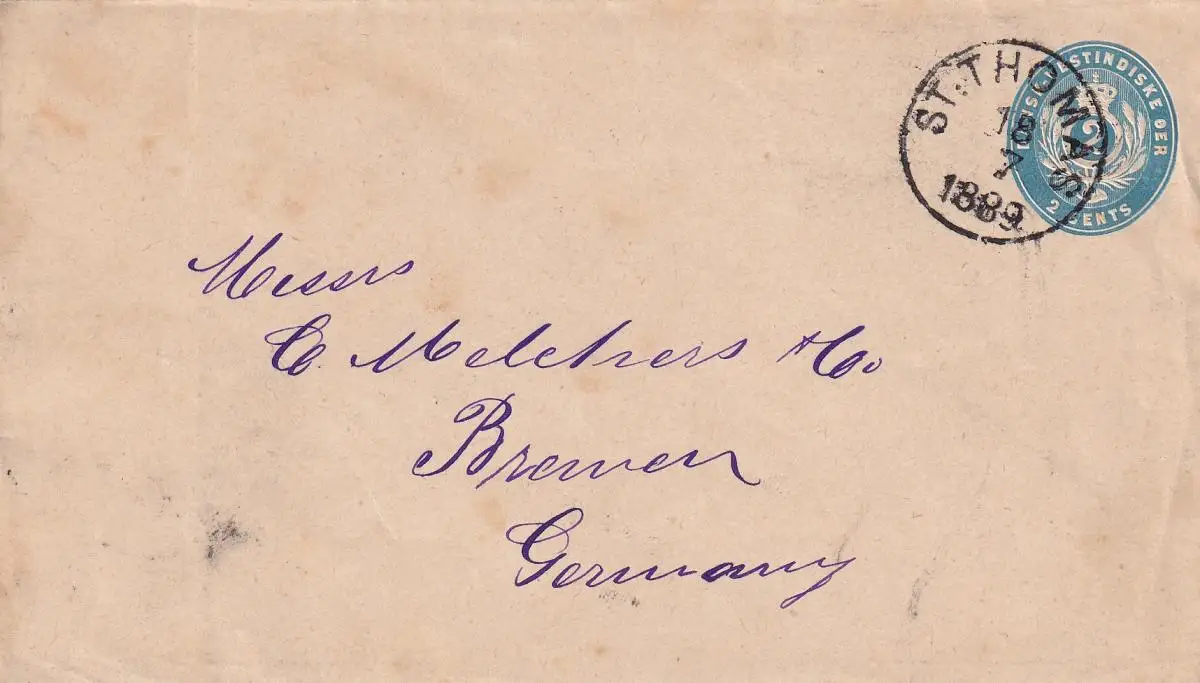 ST. THOMAS
18
7
1889
VESTINDISKE ØER
2
2 CENTS
Messrs
C. Melchers & Co
Bremen
Germany